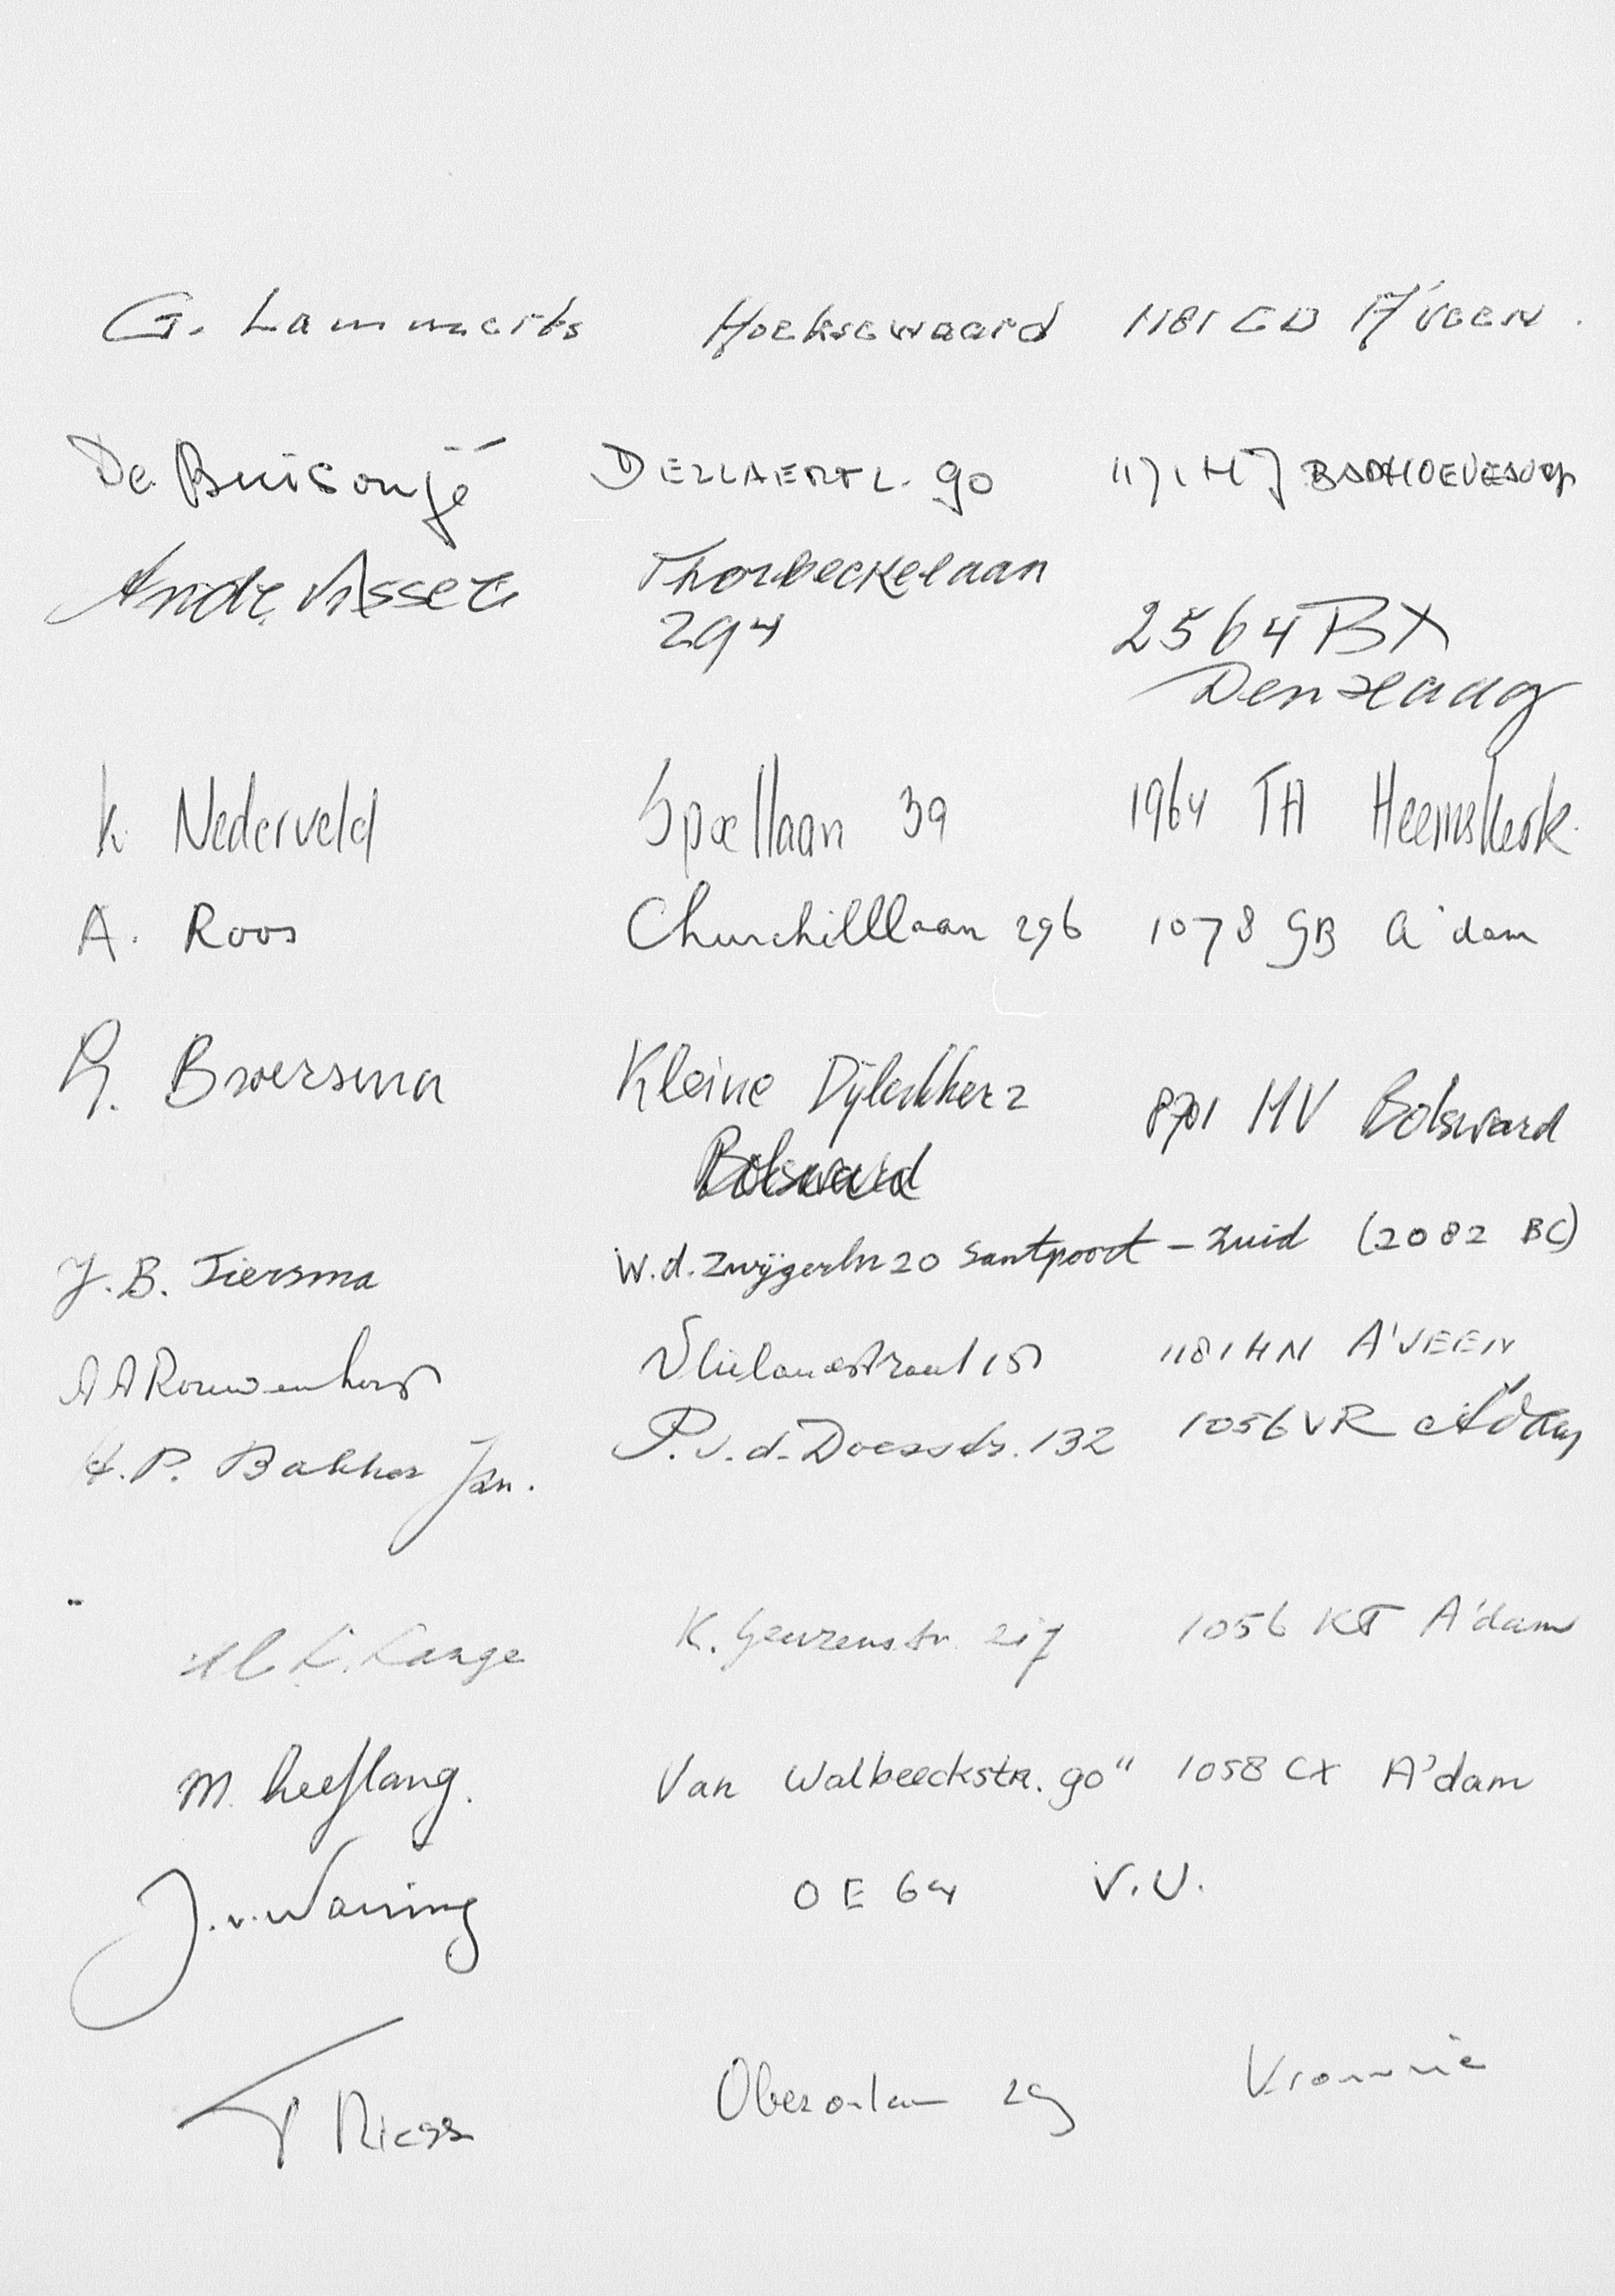 G. Lammerts Hoeksewaard 1181 CD A'VEEN.
De Buisonjé DELLAERTL. 90 1171 HJ BADHOEVEDORP
André Visser Thorbeckelaan
294 2564 BX
Den Haag
K. Nederveld Spaellaan 39 1964 TA Heemskerk.
A. Roos Churchilllaan 296 1078 GB A'dam
Boersma Kleine 2 8701 HV Bolsward
Bolsward
J.B. Tiersma W.d. Zwijgerln 20 Santpoort - Zuid (2082 BC)
A A Rouwenhorst Vlielandstraat 1181 HN A'VEEN
H.P. Bakker Jzn. P.v.d. Doesstr. 132 1056 VR A'dam
Lange K. Geuzenstr. 1056 KT A'dam
M. Leeflang. Van Walbeeckstr. 90" 1058 CX A'dam
J. v. Waning OE 64 V.U.
29